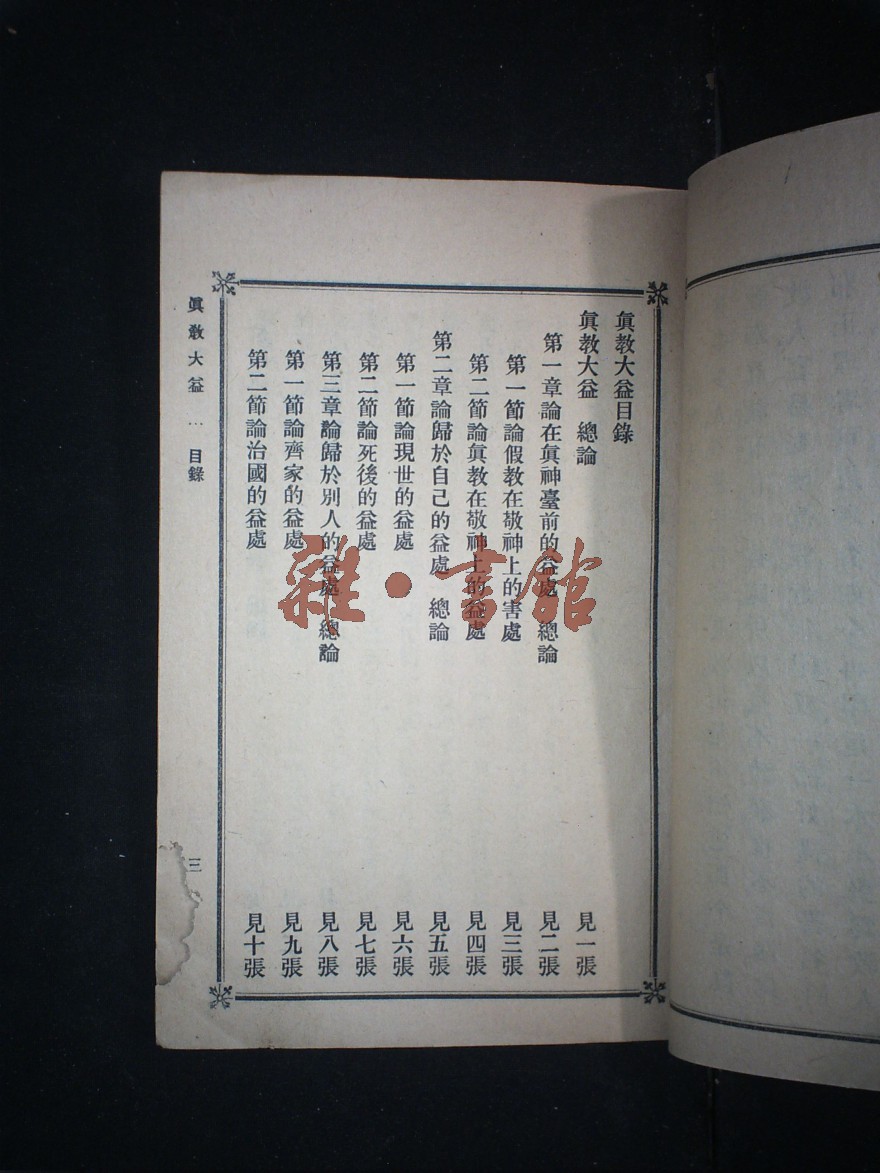 眞教大益目錄
眞教大益　總論　見一張
第一章論在眞神臺前的益處　總論　見二張
第一節論假教在敬神上的害處　見三張
第二節論眞教在敬神上的益處　見四張
第二章論歸於自己的益處　總論　見五張
第一節論現世的益處　見六張
第二節論死後的益處　見七張
第三章論歸於別人的益處　總論　見八張
第一節論齊家的益處　見九張
第二節論治國的益處　見十張
眞教大益 … 目錄　三
雜·書館